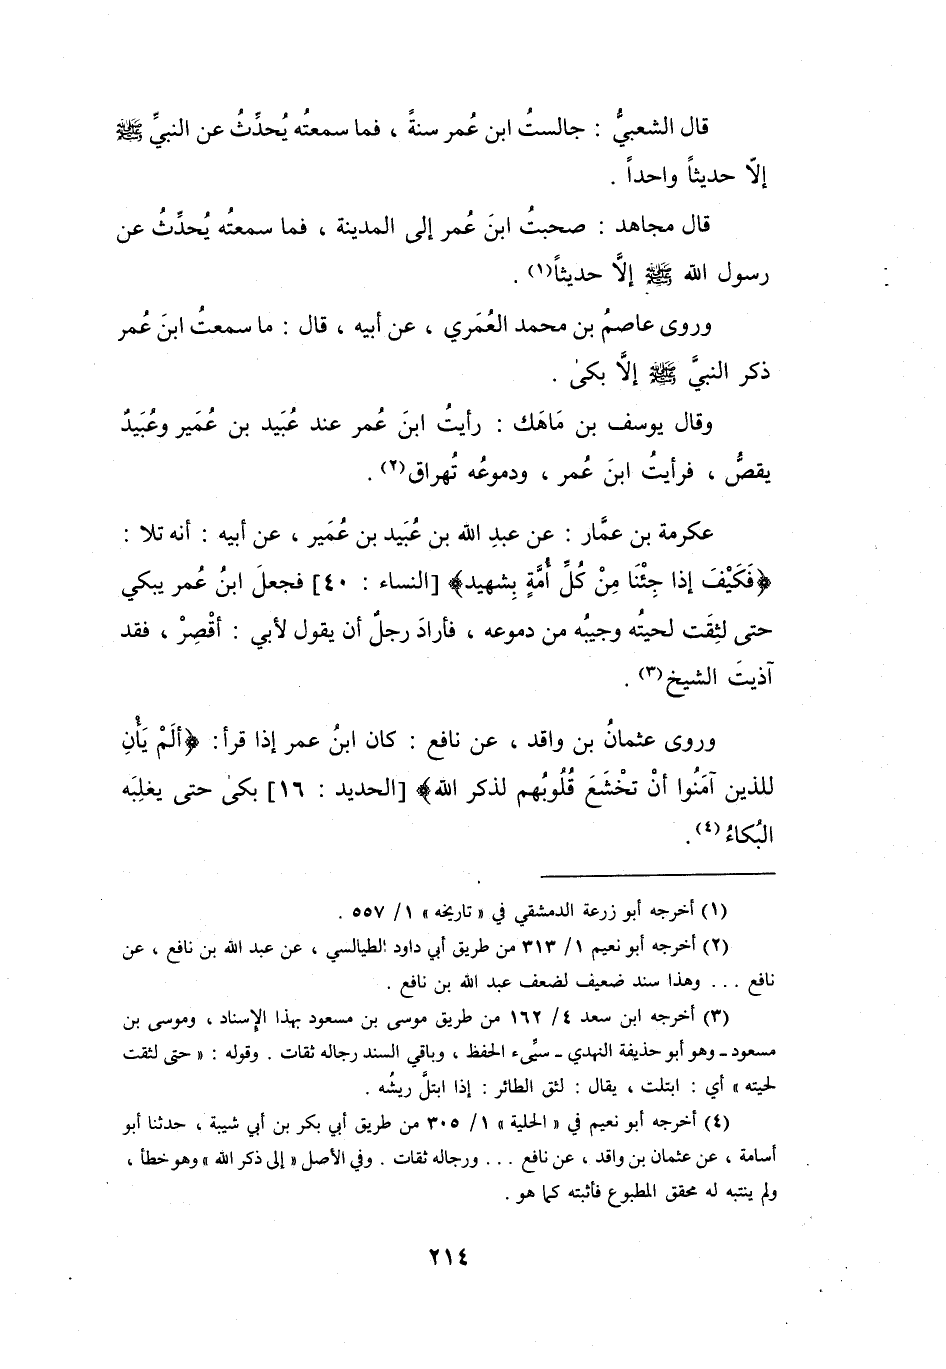 قال الشعبيُّ : جالستُ ابن عُمر سنةً ، فما سمعتُه يُحدِّثُ عن النبيِّ ﷺ
إلاّ حديثاً واحداً .
قال مجاهد : صحبتُ ابنَ عُمر إلى المدينة ، فما سمعتُه يُحدِّثُ عن
رسول الله ﷺ إلَّا حديثاً(١) .
وروى عاصمُ بن محمد العُمَري ، عن أبيه ، قال : ما سمعتُ ابنَ عُمر
ذكر النبيَّ ﷺ إلَّا بكىٰ .
وقال يوسف بن مَاهَك : رأيتُ ابنَ عُمر عند عُبَيد بن عُمَير وعُبَيدٌ
يقصُّ ، فرأيتُ ابنَ عُمر ، ودموعُه تُهراق(٢) .
عكرمة بن عمَّار : عن عبدِ الله بن عُبَيد بن عُمَير ، عن أبيه : أنه تلا :
﴿فَكَيْفَ إذا جِئْنَا مِنْ كُلِّ أُمَّةٍ بِشهيد﴾ [النساء : ٤٠] فجعلَ ابنُ عُمر يبكي
حتى لثِقَت لحيتُه وجيبُه من دموعه ، فأرادَ رجلٌ أن يقول لأبي : أقْصِرْ ، فقد
آذيتَ الشيخ(٣) .
وروى عثمانُ بن واقد ، عن نافع : كان ابنُ عمر إذا قرأ: ﴿ألَمْ يَأْنِ
للذين آمَنُوا أنْ تخْشَعَ قُلُوبُهم لذكر الله﴾ [الحديد : ١٦] بكىٰ حتى يغلِبَه
البُكاءُ(٤) .
(١) أخرجه أبو زرعة الدمشقي في « تاريخه » ١/ ٥٥٧ .
(٢) أخرجه أبو نعيم ١/ ٣١٣ من طريق أبي داود الطيالسي ، عن عبد الله بن نافع ، عن
نافع . . . وهذا سند ضعيف لضعف عبد الله بن نافع .
(٣) أخرجه ابن سعد ٤/ ١٦٢ من طريق موسى بن مسعود بهذا الإسناد ، وموسى بن
مسعود ـ وهو أبو حذيفة النهدي ـ سيِّىء الحفظ ، وباقي السند رجاله ثقات . وقوله : « حتى لثقت
لحيته » أي : ابتلت ، يقال : لثق الطائر : إذا ابتلَّ ريشُه .
(٤) أخرجه أبو نعيم في « الحلية » ١/ ٣٠٥ من طريق أبي بكر بن أبي شيبة ، حدثنا أبو
أسامة ، عن عثمان بن واقد ، عن نافع . . . ورجاله ثقات . وفي الأصل « إلى ذكر الله » وهو خطأ ،
ولم ينتبه له محقق المطبوع فأثبته كما هو .
٢١٤